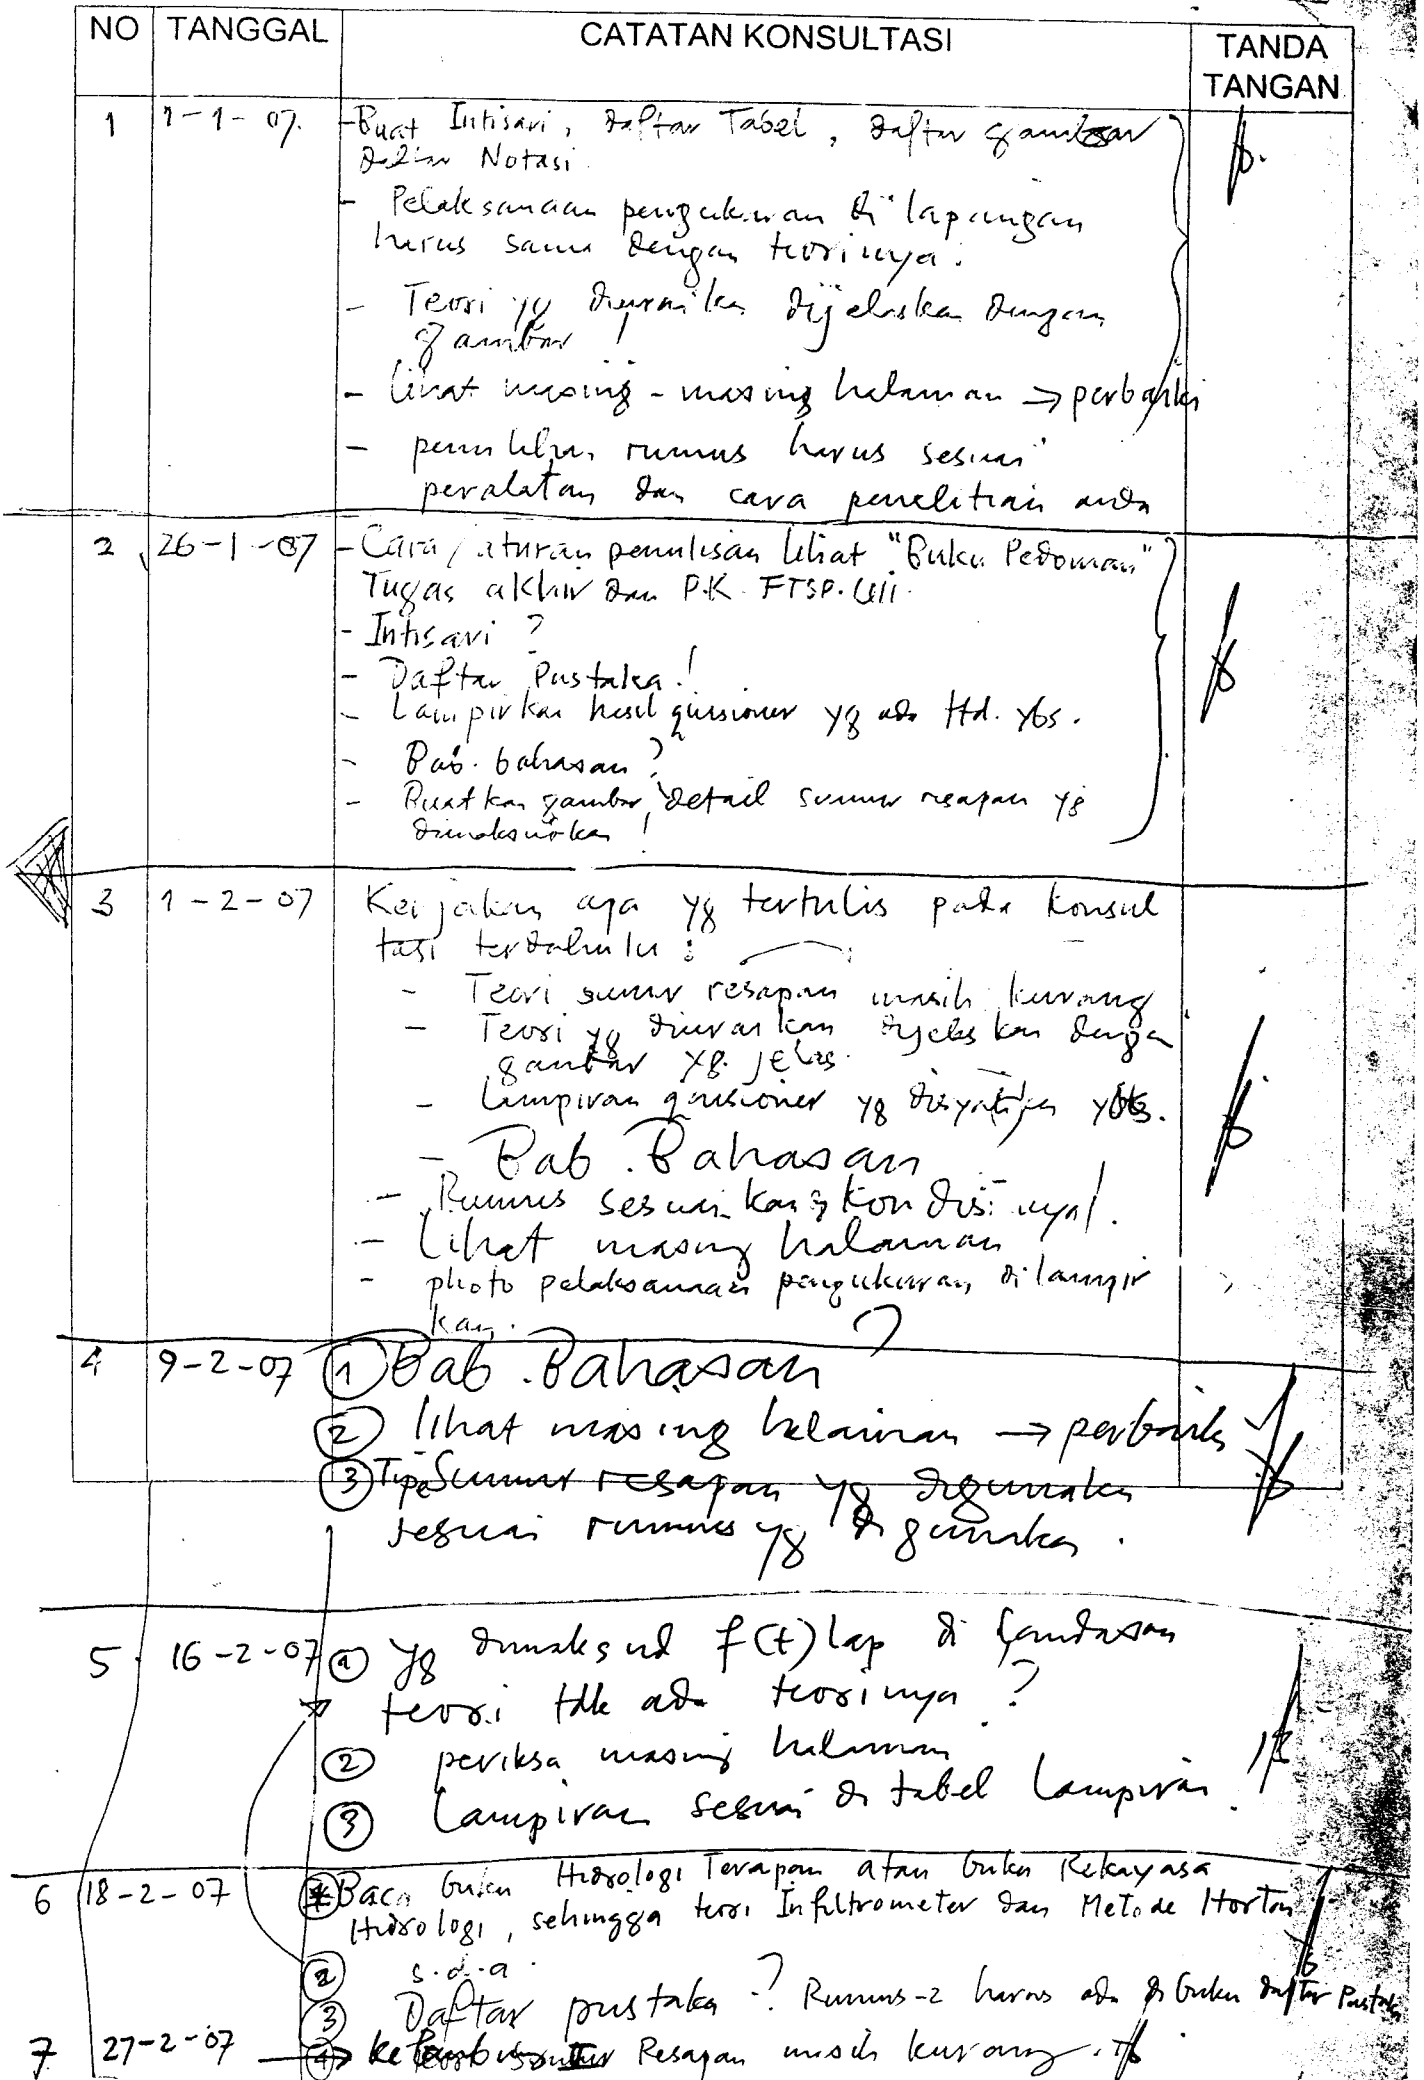 NO TANGGAL CATATAN KONSULTASI TANDA TANGAN
1 1-1-07. - Buat Intisari, Daftar Tabel, Daftar gambar
Daftar Notasi
- Pelaksanaan pengukuran di lapangan
harus sama dengan teorinya.
- Teori yg diuraikan dijelaskan dengan
gambar !
- lihat masing-masing halaman → perbaiki
- pemilihan rumus harus sesuai
peralatan dan cara penelitian anda
2 26-1-07 - Cara / aturan penulisan lihat "Buku Pedoman"
Tugas akhir dan P.K. FTSP. UII.
- Intisari ?
- Daftar Pustaka !
- Lampirkan hasil quisioner yg ada ttd. ybs.
- Bab. bahasan ?
- Buatkan gambar, detail sumur resapan yg
dimaksudkan !
3 1-2-07 Kerjakan apa yg tertulis pada konsul
tasi terdahulu :
- Teori sumur resapan masih kurang
- Teori yg diuraikan dijelaskan dengan
gambar yg. jelas.
- Lampiran quisioner yg ybs.
- Bab. Bahasan
- Rumus sesuaikan kondisinya!
- Lihat masing halaman
- photo pelaksanaan pengukuran dilampir
kan.
4 9-2-07 ① Bab. Bahasan ?
② lihat masing halaman → perbaiki
③ Tipe Sumur resapan yg digunakan
sesuai rumus yg digunakan.
5 16-2-07 ① yg dimaksud f(t) lap di landasan
teori tdk ada teorinya ?
② periksa masing halaman
③ Lampiran sesuai di tabel lampiran.
6 18-2-07 Baca buku Hidrologi Terapan atau buku Rekayasa
Hidrologi, sehingga teori Infiltrometer dan Metode Horton
② s.d.a.
③ Daftar pustaka ? Rumus-2 harus ada di buku Daftar Pustaka
④ Resapan masih kurang.
7 27-2-07 → ke II